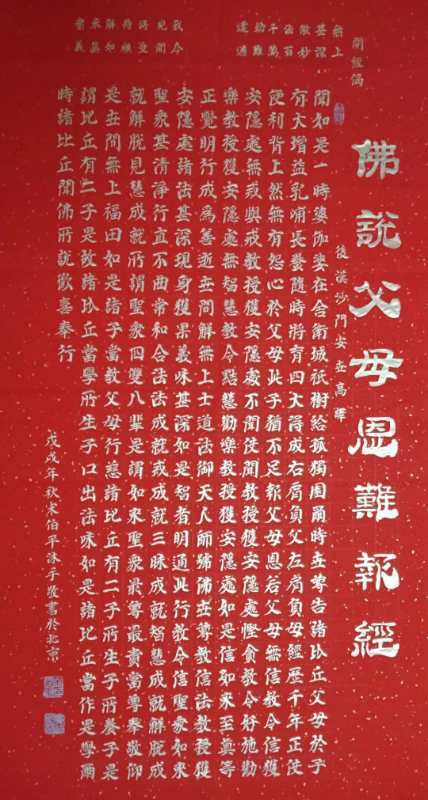 開經偈
無上
甚深
微妙
法百
千萬
劫難
遭遇
我今
見聞
得受
持願
解如
來真
實義
佛説父母恩難報經
後漢沙門安世高譯
聞如是一時婆伽婆在舍衛城祇樹給孤獨園爾時世尊告諸比丘父母於子
有大增益乳哺長養隨時將育四大得成右肩負父左肩負母經歷千年正使
便利背上然無有怨心於父母此子猶不足報父母恩若父母無信教令信獲
安隱處無戒與戒教授獲安隱處不聞使聞教授獲安隱處慳貪教令好施勸
樂教授獲安隱處無智慧教令黠慧勸樂教授獲安隱處如是信如來至真等
正覺明行成為善逝世間解無上士道法御天人師號佛世尊教信法教授獲
安隱處諸法甚深現身獲果義味甚深如是智者明通此行教令信聖眾如來
聖眾甚清淨行直不曲常和合法法成就戒成就三昧成就智慧成就解脫成
就解脫見慧成就所謂聖眾四雙八輩是謂如來聖眾最尊最貴當尊奉敬仰
是世間無上福田如是諸子當教父母行慈諸比丘有二子所生子所養子是
謂比丘有二子是故諸比丘當學所生子口出法味如是諸比丘當作是學爾
時諸比丘聞佛所說歡喜奉行
戊戌年秋宋伯平詠手敬書於北京